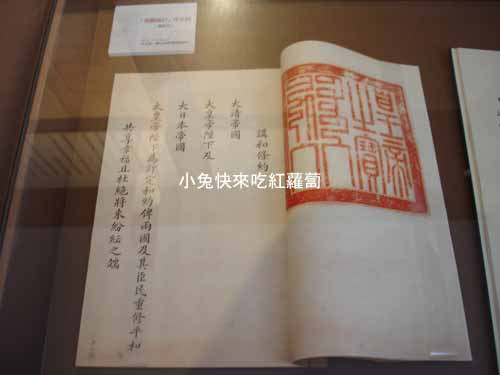 皇帝之寶
講和條約
大清帝國
大皇帝陛下及
大日本帝國
大皇帝陛下為訂定和約俾兩國及其臣民重修平和
共享幸福且杜絕將來紛紜之端
小兔快來吃紅蘿蔔